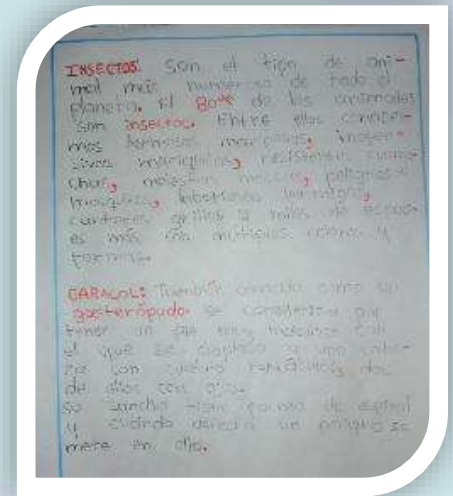 INSECTOS: Son el tipo de ani-
mal más numeroso de todo el
planeta. El 80% de los animales
son insectos. Entre ellos conoce-
mos hermosas mariposas, inofen-
sivas mariquitas, resistentes cucara-
chas, molestas moscas, peligrosos
mosquitos,
cantores grillos y miles de espec
es más con múltiples colores y
formas.
CARACOL: También conocido como un
gasterópodo se caracteriza por
tener un pie muy musculoso con
el que se desplaza y una cabe-
za con cuatro tentáculos, dos
de ellos con ojos.
Su concha tiene forma de espiral
y cuando detecta un peligro se
mete en ella.